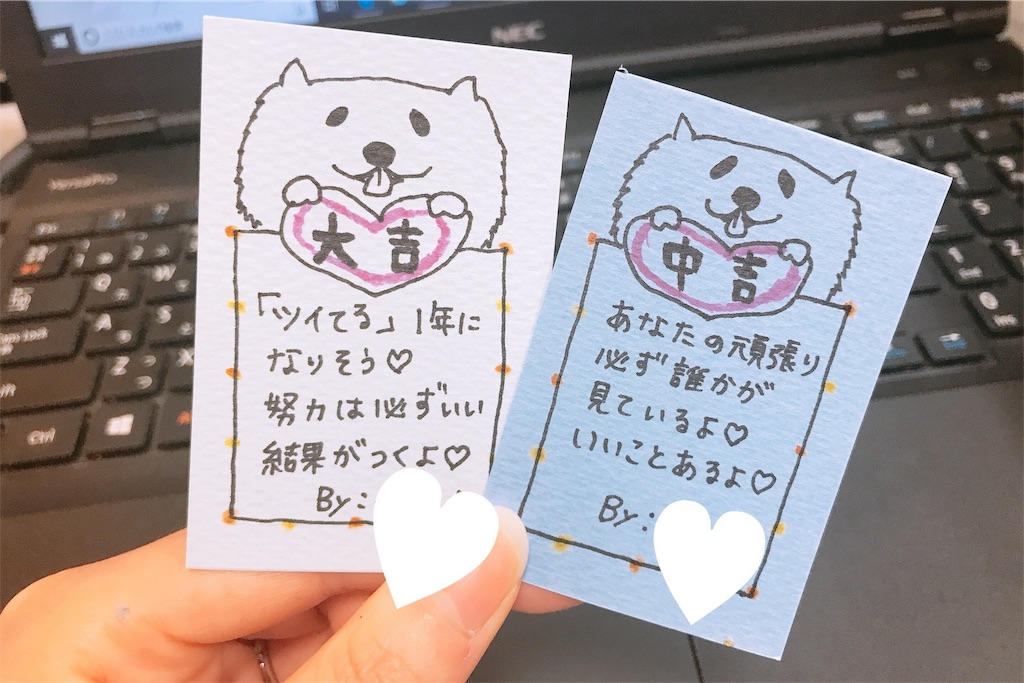 NEC
VersaPro
大吉
「ツイてる」1年に
なりそう♡
努力は必ずいい
結果がつくよ♡
By:
中吉
あなたの頑張り
必ず誰かが
見ているよ♡
いいことあるよ♡
By:
Ctrl